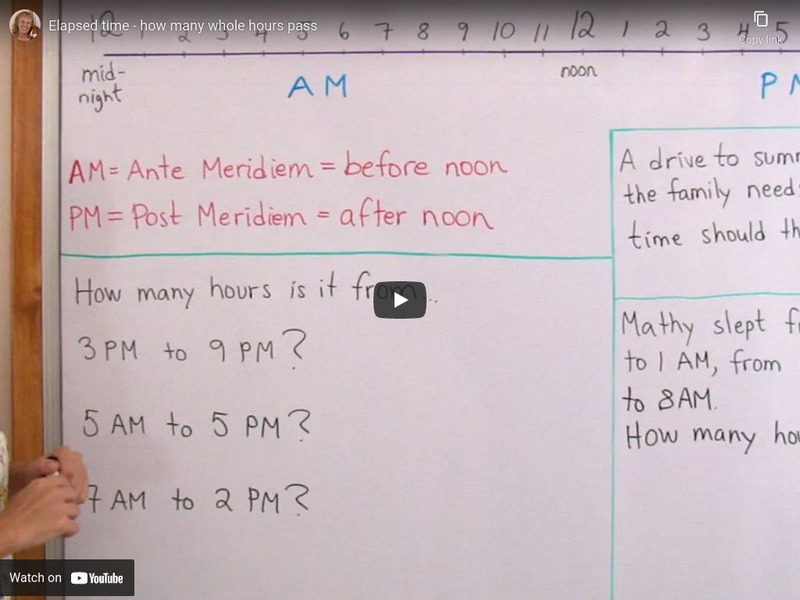 Elapsed time - how many whole hours pass
Copy link
12 2 3 4 5 6 7 8 9 10 11 12 1 2 3 4 5
mid-
night
noon
AM
AM = Ante Meridiem = before noon
PM = Post Meridiem = after noon
How many hours is it from...
3 PM to 9 PM?
5 AM to 5 PM?
7 AM to 2 PM?
A drive to
the family need
time should
Mathy slept
to 1 AM, from
to 8 AM.
How many
Watch on YouTube